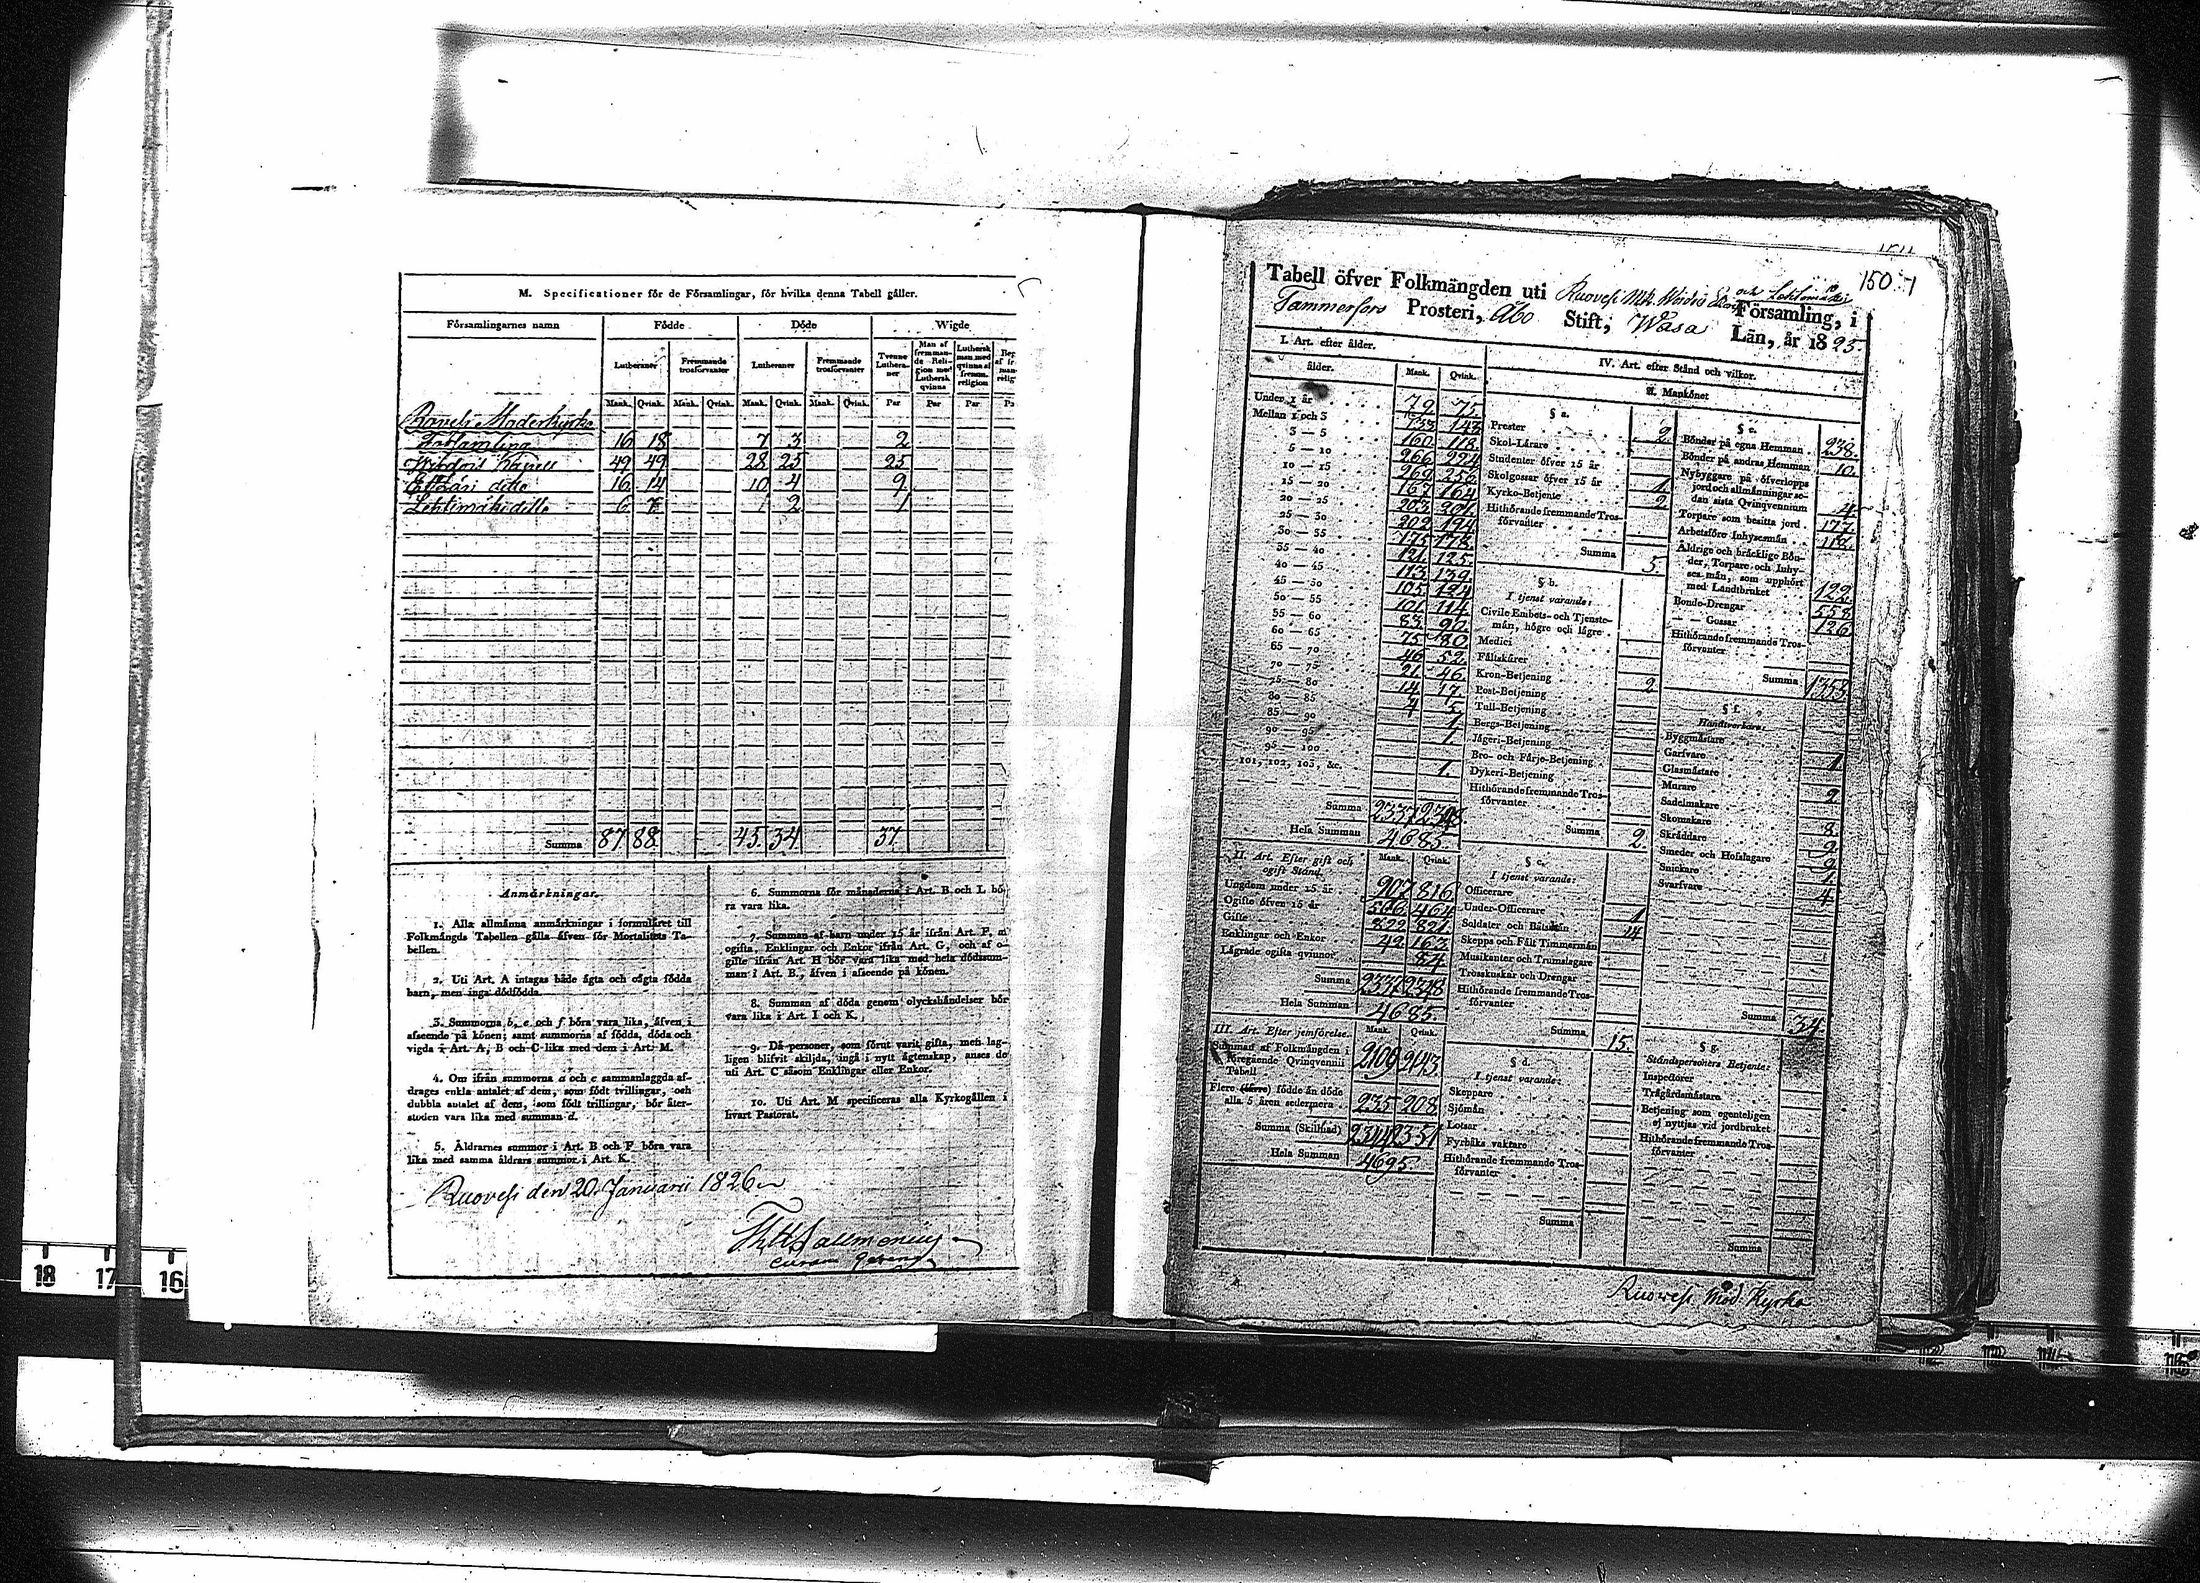 M. Specificationer för de Församlingar, för hvilka denna Tabell gäller.
Församlingarnes namn Födde Döde Wigde
Lutheraner Främmande trosförvanter Lutheraner Främmande trosförvanter Tvenne Lutheraner Man af fremmande Religion med Luthersk qvinna Luthersk man med qvinna af fremm. religion
Mank. Qvink. Mank. Qvink. Mank. Qvink. Mank. Qvink. Par Par Par
Moderkyrko
Församling 16 18 7 3 2
Kapell 49 49 28 25 25
ditto 16 14 10 4 9
ditto 6 7 1 2 1
Summa 87 88 45 34 37
Anmärkningar.
1. Alla allmänna anmärkningar i formuläret till
Folkmängds Tabellen gälla äfven för Mortalitets Ta-
bellen.
2. Uti Art. A intagas både ägta och oägta födda
barn, men inga dödfödda.
3. Summorna b, e och f böra vara lika, äfven i
afseende på könen; samt summorna af födda, döda och
vigda i Art. A, B och C lika med dem i Art. M.
4. Om ifrån summorna a och c sammanlaggda af-
drages enkla antalet af dem, som födt tvillingar, och
dubbla antalet af dem, som födt trillingar, bör åter-
stoden vara lika med summan d.
5. Åldrarnes summor i Art. B och F böra vara
lika med samma åldrars summor i Art. K.
6. Summorna för månaderna i Art. B och L bö-
ra vara lika.
7. Summan af barn under 15 år ifrån Art. F,
ogifta, Enklingar och Enkor ifrån Art. G, och af o-
gifte ifrån Art. H bör vara lika med hela dödssum-
man i Art. B., äfven i afseende på könen.
8. Summan af döda genom olyckshändelser bör
vara lika i Art. I och K.
9. Då personer, som förut varit gifta, men lag-
ligen blifvit skiljda, ingå i nytt ägtenskap, anses de
uti Art. C såsom Enklingar eller Enkor.
10. Uti Art. M specificeras alla Kyrkogällen i
hvart Pastorat.
Ruovesi den 20 Januarii 1826
150
Tabell öfver Folkmängden uti Ruovesi Församling, i
Tammerfors Prosteri, Åbo Stift, Wasa Län, år 1825.
I. Art. efter ålder.
ålder. Mank. Qvink.
Under 1 år 79 75
Mellan 1 och 3 143
3 — 5 160 118
5 — 10 266 224
10 — 15 269 256
15 — 20 167 164
20 — 25 203 201
25 — 30 202 194
30 — 35 175 178
35 — 40 121 125
40 — 45 113 139
45 — 50 105 124
50 — 55 101 114
55 — 60 83 90
60 — 65 75 80
65 — 70 46 52
70 — 75 21 46
75 — 80 14 17
80 — 85 4 5
85 — 90 1
90 — 95 1
95 — 100
101, 102, 103, &c. 1
Summa 2337 2348
Hela Summan 4685
II. Art. Efter gift och ogift Stånd. Mank. Qvink.
Ungdom under 15 år 907 816
Ogifte öfver 15 år 566 464
Gifte 822 821
Enklingar och Enkor 42 163
Lägrade ogifta qvinnor 84
Summa 2337 2348
Hela Summan 4685
III. Art. Efter jemförelse. Mank. Qvink.
Summan af Folkmängden i
föregående Qvinqvennii
Tabell 2109 2143
Flere födde än döde
alla 5 åren sedermera 235 208
Summa (Skillnad) 2344 2351
Hela Summan 4695
IV. Art. efter Stånd och vilkor.
Mankönet
§ a.
Prester 2
Skol-Lärare
Studenter öfver 15 år
Skolgossar öfver 15 år 1
Kyrko-Betjente 2
Hithörande fremmande Tros-
förvanter
Summa 5
§ b.
I tjenst varande:
Civile Embets- och Tjenste-
män, högre och lägre
Medici
Fältskärer
Kron-Betjening 2
Post-Betjening
Tull-Betjening
Bergs-Betjening
Jägeri-Betjening
Bro- och Färje-Betjening
Dykeri-Betjening
Hithörande fremmande Tros-
förvanter
Summa 2
§ c.
I tjenst varande:
Officerare
Under-Officerare 1
Soldater och Båtsmän 14
Skepps och Fält Timmermän
Musikanter och Trumslagare
Trosskuskar och Drengar
Hithörande fremmande Tros-
förvanter
Summa 15
§ d.
I tjenst varande:
Skeppare
Sjömän
Lotsar
Fyrbåks vaktare
Hithörande fremmande Tros-
förvanter
Summa
§ e.
Bönder på egna Hemman 238
Bönder på andras Hemman 10
Nybyggare på öfverlopps
jord och allmänningar se-
dan sista Qvinqvennium 4
Torpare som besitta jord 177
Arbetsföre Inhysesmän 112
Åldrige och bräcklige Bön-
der, Torpare och Inhy-
ses män, som upphört
med Landtbruket 122
Bonde-Drengar 558
— — Gossar 126
Hithörande fremmande Tros-
förvanter
Summa 1353
§ f.
Handtverkare:
Byggmästare
Garfvare 1
Glasmästare
Murare 2
Sadelmakare
Skomakare 8
Skräddare 9
Smeder och Hofslagare 9
Snickare 1
Svarfvare 4
Summa 34
§ g.
Ståndspersoners Betjente:
Inspectorer
Trägårdsmästare
Betjening som egenteligen
ej nyttjas vid jordbruket
Hithörande fremmande Tros-
förvanter
Summa
Ruovesi Mod. Kyrka
18 17 16